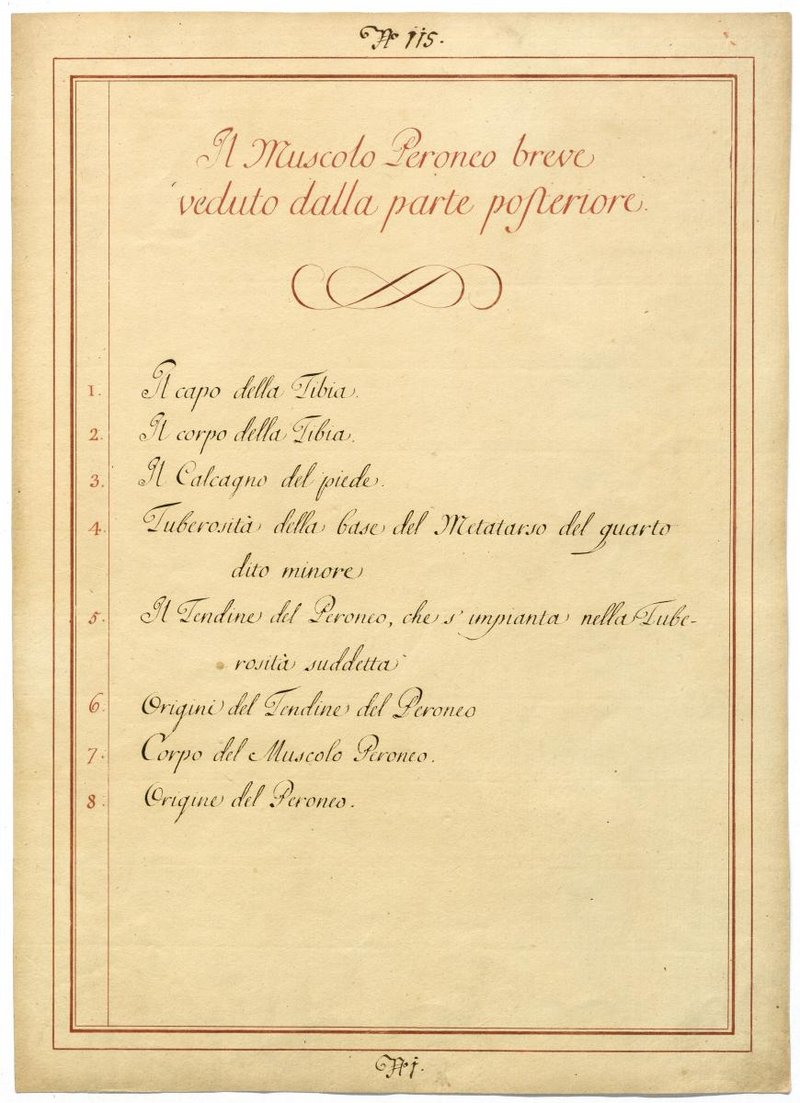 N.º 115.
Il Muscolo Peroneo breve
veduto dalla parte poſteriore.
1. Il capo della Tibia.
2. Il corpo della Tibia.
3. Il Calcagno del piede.
4. Tuberosità della base del Metatarso del quarto
dito minore
5. Il Tendine del Peroneo, che s'impianta nella Tube-
rosità suddetta
6. Origini del Tendine del Peroneo
7. Corpo del Muscolo Peroneo.
8. Origine del Peroneo.